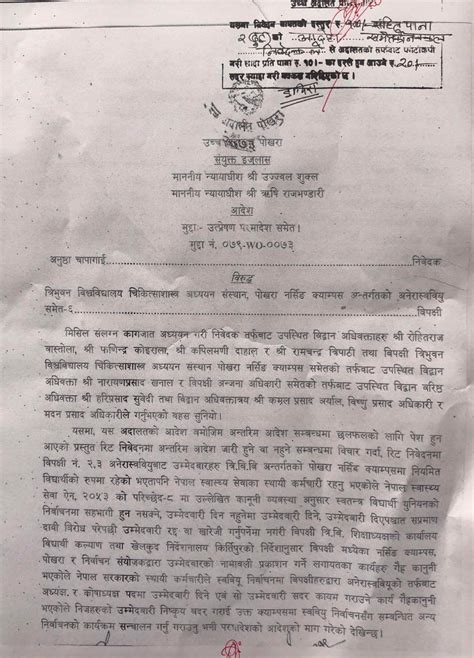 उच्च अदालत पोखरा
संयुक्त इजलास
माननीय न्यायाधीश श्री उज्ज्वल शुक्ल
माननीय न्यायाधीश श्री ऋषि राजभण्डारी
आदेश
मुद्दाः- उत्प्रेषण परमादेश समेत।
मुद्दा नं. ०७९-WO-००७३
अनुष्ठा चापागाई..............................निवेदक
विरुद्ध
त्रिभुवन विश्वविद्यालय चिकित्साशास्त्र अध्ययन संस्थान, पोखरा नर्सिङ क्याम्पस अन्तर्गतको अनेरास्ववियु
समेत-६..............................विपक्षी
मिसिल संलग्न कागजात अध्ययन गरी निवेदक तर्फबाट उपस्थित विद्वान अधिवक्ताहरु श्री रोहितराज
वास्तोला, श्री फणिन्द्र कोइराला, श्री कपिलमणी दाहाल र श्री रामचन्द्र त्रिपाठी तथा विपक्षी त्रिभुवन
विश्वविद्यालय चिकित्साशास्त्र अध्ययन संस्थान र पोखरा नर्सिङ क्याम्पस समेतको तर्फबाट उपस्थित विद्वान
अधिवक्ता श्री नारायणप्रसाद खनाल र विपक्षी अन्जना अधिकारी समेतको तर्फबाट उपस्थित विद्वान बरिष्ठ
अधिवक्ता श्री हरिप्रसाद सुवेदी तथा विद्वान अधिवक्तात्रय श्री कमल प्रसाद अर्याल, विष्णु प्रसाद अधिकारी र
मदन प्रसाद अधिकारीले गर्नुभएको बहस सुनियो।
यसमा, यस अदालतको आदेश बमोजिम अन्तरिम आदेश सम्बन्धमा छलफलको लागि पेश हुन
आएको प्रस्तुत रिट निवेदनमा अन्तरिम आदेश जारी हुने वा नहुने सम्बन्धमा विचार गर्दा, रिट निवेदनमा
विपक्षी नं. २,३ अनेरास्ववियुबाट उम्मेदवारहरु त्रि.वि.वि अन्तर्गतको पोखरा नर्सिङ क्याम्पसमा नियमित
विद्यार्थीको रुपमा रहेको भएतापनि नेपाल स्वास्थ्य सेवाका स्थायी कर्मचारी रहनु भएकोले नेपाल स्वास्थ्य
सेवा ऐन, २०५३ को परिच्छेद-८ मा उल्लेखित कानूनी व्यवस्था अनुसार स्वतन्त्र विद्यार्थी युनियनको
निर्वाचनमा सहभागी हुन नसक्ने, उम्मेदवारी दिन नहुनेमा उम्मेदवारी दिने, उम्मेदवारी दिएपश्चात सप्रमाण
दाबी विरोध परेपछी उम्मेदवारी रद्द वा खारेजी गर्नुपर्नेमा नगरी विपक्षी त्रि.वि. शिक्षाध्यक्षको कार्यालय
विद्यार्थी कल्याण तथा खेलकुद निर्देशनालय किर्तिपुरको निर्देशानुसार विपक्षी मध्येका नर्सिङ क्याम्पस,
पोखरा र निर्वाचन संयोजकद्वारा उम्मेदवारको नामावली प्रकाशन गर्ने लगायतका कार्यहरु गैह्र कानूनी
भएकोले नेपाल सरकारको स्थायी कर्मचारीले स्ववियु निर्वाचनमा बिपक्षीहरुद्वारा अनेरास्ववियुको तर्फबाट
अध्यक्ष, र कोषाध्यक्ष पदमा उम्मेदवारी दिने एवं सो उम्मेदवारी सदर कायम गराउने कार्य गैह्रकानूनी
भएकोले निजहरुको उम्मेदवारी निष्कृय बदर गराई उक्त क्याम्पसमा स्ववियु निर्वाचनसँग सम्बन्धित अन्य
निर्वाचनको कार्यक्रम सन्चालन गर्नु गराउनु भनी परमादेशको आदेशको माग गरेको देखिन्छ।